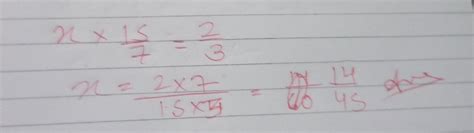 x × 15/7 = 2/3
x = 2×7/15×3 = 14/45 Ans